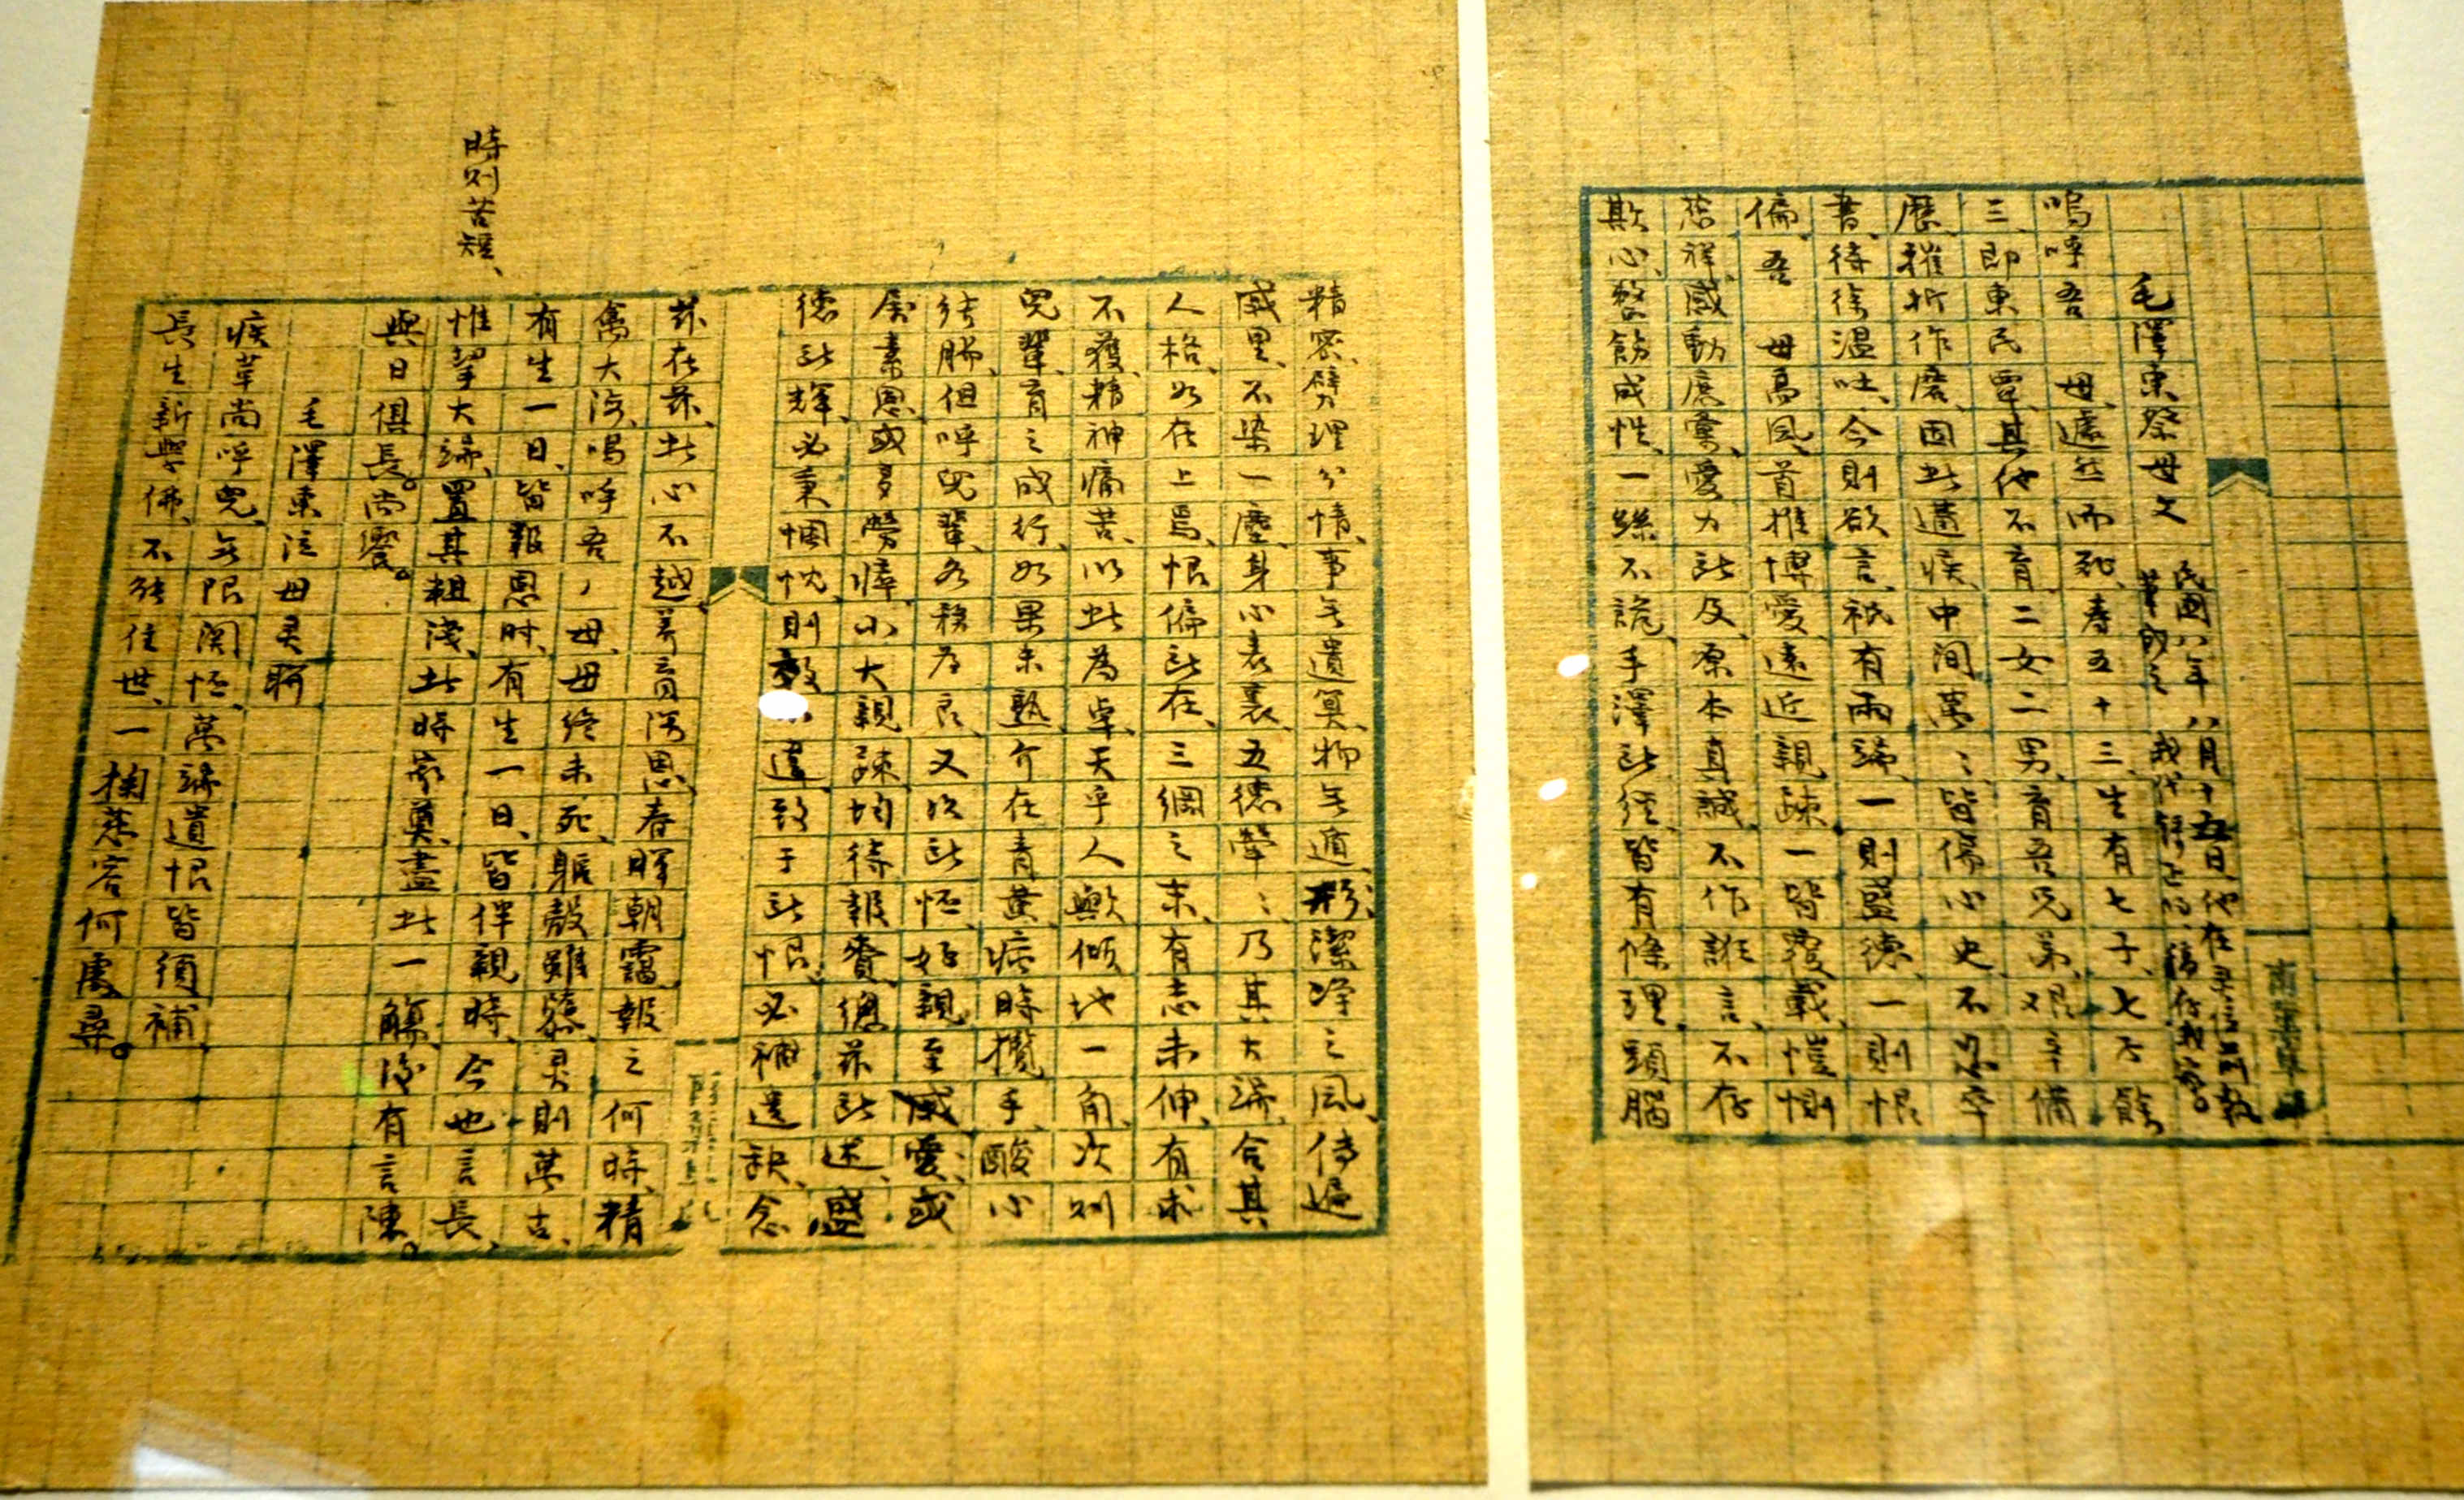 毛澤東祭母文
民國八年八月十五日他在
嗚呼吾　母遽然而死、壽五十三、生有七子、七子餘
三、即東民覃、其他不育、二女二男、育吾兄弟、艱辛備
歷、摧折作磨、因此遘疾、中间萬〻、皆傷心史、不忍卒
書、待徐溫吐、今則欲言、祇有兩端、一則盛德、一則恨
偏、吾　母高風、首推博愛、遠近親疎、一皆覆載、愷惻
慈祥、感動庶彙、愛力所及、原本真誠、不作誑言、不存
欺心、整飭成性、一絲不詭、手澤所經、皆有條理、頭腦
精密、劈理分情、事无遺算、物无遁形、潔淨之風、傳遍
戚里、不染一塵、身心表裏、五德犖〻、乃其大端、合其
人格、如在上焉、恨偏所在、三綱之末、有志未伸、有求
不獲、精神痛苦、以此為卓、天乎人歟、傾地一角、次則
兒輩、育之成行、如果未熟、介在青黃、病時攬手、酸心
結腸、但呼兒輩、各務为良、又次所怀、好親至愛、或
屬素恩、或多勞瘁、小大親疎、均待報賚、總茲所述、盛
德所輝、必秉悃忱、則效　違、致于所恨、必補遺缺、念
茲在茲、此心不越、養育深恩、春暉朝靄、報之何時、精
禽大海、嗚呼吾　母、母終未死、軀殼雖隳、灵則萬古、
有生一日、皆報恩时、有生一日、皆伴親時、今也言長、
時則苦短、
惟挈大端、置其粗淺、此時家奠、盡此一觴、後有言陳、
與日俱長。尚饗。
毛澤東泣母灵聯
疾革尚呼兒、无限関怀、萬端遺恨皆須補、
長生新學佛、不能住世、一掬慈容何處尋。